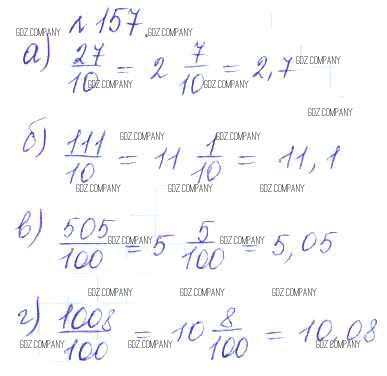 №157.
GDZ.COMPANY GDZ.COMPANY GDZ.COMPANY
а) 27/10 = 2 7/10 = 2,7
GDZ.COMPANY
GDZ.COMPANY GDZ.COMPANY
GDZ.COMPANY
б) 111/10 = 11 1/10 = 11,1
GDZ.COMPANY GDZ.COMPANY
GDZ.COMPANY GDZ.COMPANY GDZ.COMPANY
в) 505/100 = 5 5/100 = 5,05
GDZ.COMPANY GDZ.COMPANY
GDZ.COMPANY GDZ.COMPANY GDZ.COMPANY
г) 1008/100 = 10 8/100 = 10,08
GDZ.COMPANY GDZ.COMPANY GDZ.COMPANY